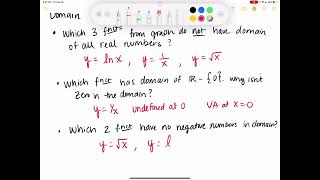 Domain
• Which 3 fncts from graph do not have domain
of all real numbers?
y = ln x , y = 1/x , y = √x
• Which fnct has domain of ℝ - {0}. Why isnt
zero in the domain?
y = 1/x undefined at 0 VA at x = 0
• Which 2 fnct have no negative numbers in domain?
y = √x , y = l